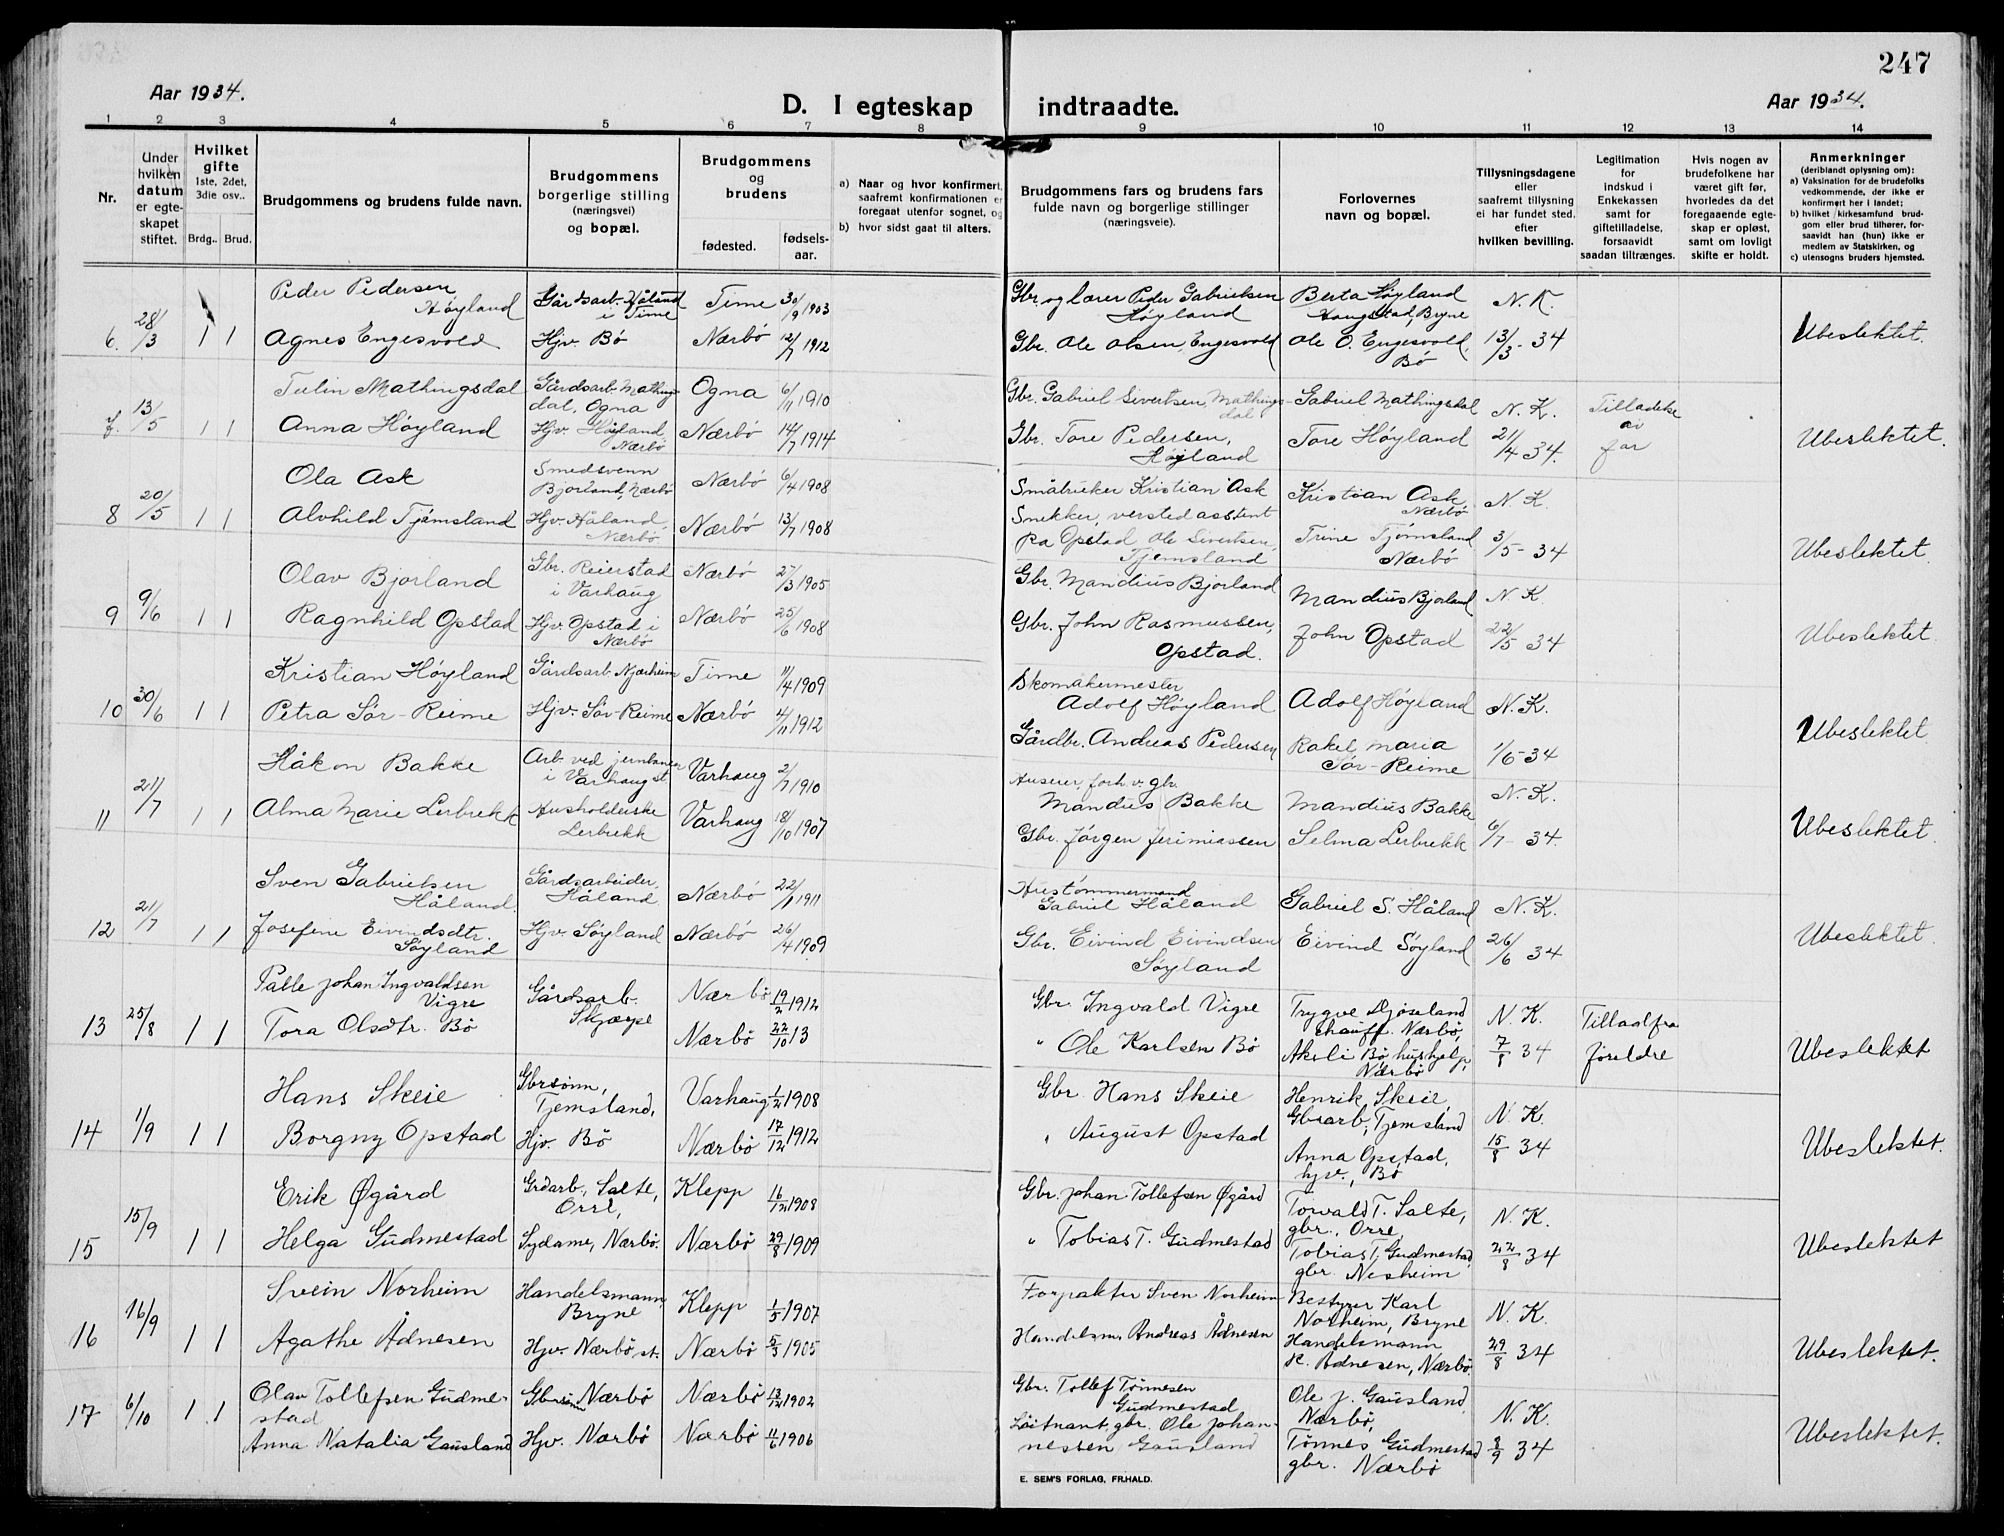 247
Aar 1934.
D. I egteskap indtraadte.
Aar 1934.
1 2 3 4 5 6 7 8 9 10 11 12 13 14
Nr.
Under hvilken datum er egteskapet stiftet.
Hvilket gifte
1ste, 2det, 3die osv..
Brdg.. Brud.
Brudgommens og brudens fulde navn.
Brudgommens borgerlige stilling (næringsvei) og bopæl.
Brudgommens og brudens
fødested. fødselsaar.
a) Naar og hvor konfirmert, saafremt konfirmationen er foregaat utenfor sognet, og
b) hvor sidst gaat til alters.
Brudgommens fars og brudens fars fulde navn og borgerlige stillinger (næringsveie).
Forlovernes navn og bopæl.
Tillysningsdagene eller saafremt tillysning ei har fundet sted. efter hvilken bevilling.
Legitimation for indskud i Enkekassen samt for giftetilladelse, forsaavidt saadan tiltrænges.
Hvis nogen av brudefolkene har været gift før, hvorledes da det foregaaende egteskap er opløst, samt om lovligt skifte er holdt.
Anmerkninger
(deriblandt oplysning om):
a) Vaksination for de brudefolks vedkommende, der ikke er konfirmert her i landet;
b) hvilket kirkesamfund brudgom eller brud tilhører, forsaavidt han (hun) ikke er medlem av Statskirken, og
c) utensogns bruders hjemsted.
6. 28/3 1 1
Peder Pedersen Høyland
Gårdsarb. Håland i Time
Time 30/9 1903
Gbr. og lærer Peder Gabrielsen Høyland
Berta Høyland Haugstad, Bryne
N. K.
Agnes Engesvold
Hjv. Bø
Nærbø 12/7 1912
Gbr. Ole Olsen, Engesvold
Ole O. Engesvold. Bø
13/3 - 34
Ubeslektet.
7. 13/5 1 1
Tulin Mathingsdal
Gårdsarb. Mathingdal, Ogna
Ogna 6/11 1910
Gbr. Gabriel Sivertsen, Mathingsdal
Gabriel Mathingsdal
N. K.
Anna Høyland
Hjv. Høyland, Nærbø
Nærbø 14/7 1914
Gbr. Tore Pedersen, Høyland
Tore Høyland
21/4 34.
far
Ubeslektet.
8 20/5 1 1
Ola Ask
Smedsvenn Bjorland, Nærbø
Nærbø 6/4 1908
Småbruker Kristian Ask
Kristian Ask Nærbø
N. K.
Alvhild Tjémsland
Hjv. Håland, Nærbø.
Nærbø 13/7 1908
Snekker, versted assient på Opstad, Ole Sivertsen, Tjemsland
Trine Tjømsland Nærbø
3/5 - 34
Ubeslektet.
9 9/6 1 1
Olav Bjorland
Gbr. Reierstad i Varhaug
Nærbø /3 1905
Gbr. Mandius Bjorland
Mandius Bjorland
N. K.
Ragnhild Opstad
Hjv. Opstad i Nærbø
Nærbø 25/6 1908
Gbr. John Rasmussen, Opstad.
John Opstad
22/5 34
Ubeslektet.
10 30/6 1 1
Kristian Høyland
Gårdsarb. Njærheim
Time 11/4 1909
Skomakermester Adolf Høyland
Adolf Høyland
N. K.
Petra Sør-Reime
Hjv. Sør-Reime
Nærbø 4/11 1912
Gårdbr. Andreas Pedersen
Rakel Maria Sør-Reime
1/6 - 34
Ubeslektet
11 21/7 1 1
Håkon Bakke
Arb. ved jernbanen i Varhaug st.
Varhaug 2/7 1910
forh. v. gbr. Mandius Bakke
Mandius Bakke
N. K.
Alma Marie Lerbrekk
Husholderske Lerbrekk
Varhaug 18/10 1907
Gbr. Jørgen Jerimiassen
Selma Lerbrekk
6/7 - 34.
Ubeslektet.
12 21/7 1 1
Sven Gabrielsen Håland.
Gårdsarbeider, Håland
Nærbø 22/1 1911
Hustømmermand Gabriel Håland
Gabriel S. Håland
N. K.
Josefine Eivindsdtr. Søyland
Hjv. Søyland
Nærbø 26/4 1909
Gbr. Eivind Eivindsen Søyland
Eivind Søyland
26/6 34
Ubeslektet.
13 25/8 1 1
Palle Johan Ingvaldsen Vigre
Gårdsarb. Skjærpe
Nærbø 19/2 1912
Gbr. Ingvald Vigre
Trygve Djøseland chauff. Nærbø,
N. K.
Tora Olsdtr. Bø
Nærbø 22/10 13
" Ole Karlsen Bø
Bø, hushjelp, Nærbø
7/8 34
Tillad fra foreldre
Ubeslektet
14 1/9 1 1
Hans Skeie
Gbrsønn, Tjemsland,
Varhaug 1/2 1908
Gbr. Hans Skeie
Henrik Skeie, Gbrarb., Tjemsland
N. K.
Borgny Opstad
Hjv. Bø
Nærbø 17/12 1912
" August Opstad
Anna Opstad, hjv., Bø
15/8 34
Ubeslektet.
15 15/9 1 1
Erik Øgård
Grdarb., Salte, Orre,
Klepp 16/12 1908
Gbr. Johan Tollefsen Øgård
Torvald T. Salte, gbr., Orre,
N. K.
Helga Gudmestad
Sydame, Nærbø.
Nærbø 29/8 1909
" Tobias T. Gudmestad
Tobias T. Gudmestad gbr. Nesheim
22/8 34
Ubeslektet
16 16/9 1 1
Svein Norheim
Handelsmann, Bryne
Klepp 1/5 1907
Forpakter Sven Norheim
Bestyrer Karl Norheim, Bryne
N. K.
Agathe Ådnesen
Hjv. Nærbø st.
Nærbø 5/3 1905
Handelsm. Andreas Ådnesen
Handelsmann K. Ådnesen, Nærbø
29/8 34
Ubeslektet.
17 6/10 1 1
Olav Tollefsen Gudmestad
Gbrsønn Nærbø
Nærbø 13/12 1902
Gbr. Tollef Tønnesen Gudmestad
Ole J. Gausland Nærbø,
N. K.
Anna Natalia Gausland
Hjv. Nærbø
Nærbø 11/6 1906
Løitnant, gbr. Ole Johannessen Gausland
Tønnes Gudmestad gbr. Nærbø
8/9 34
Ubeslektet.
E. SEM'S FORLAG, FR.HALD.